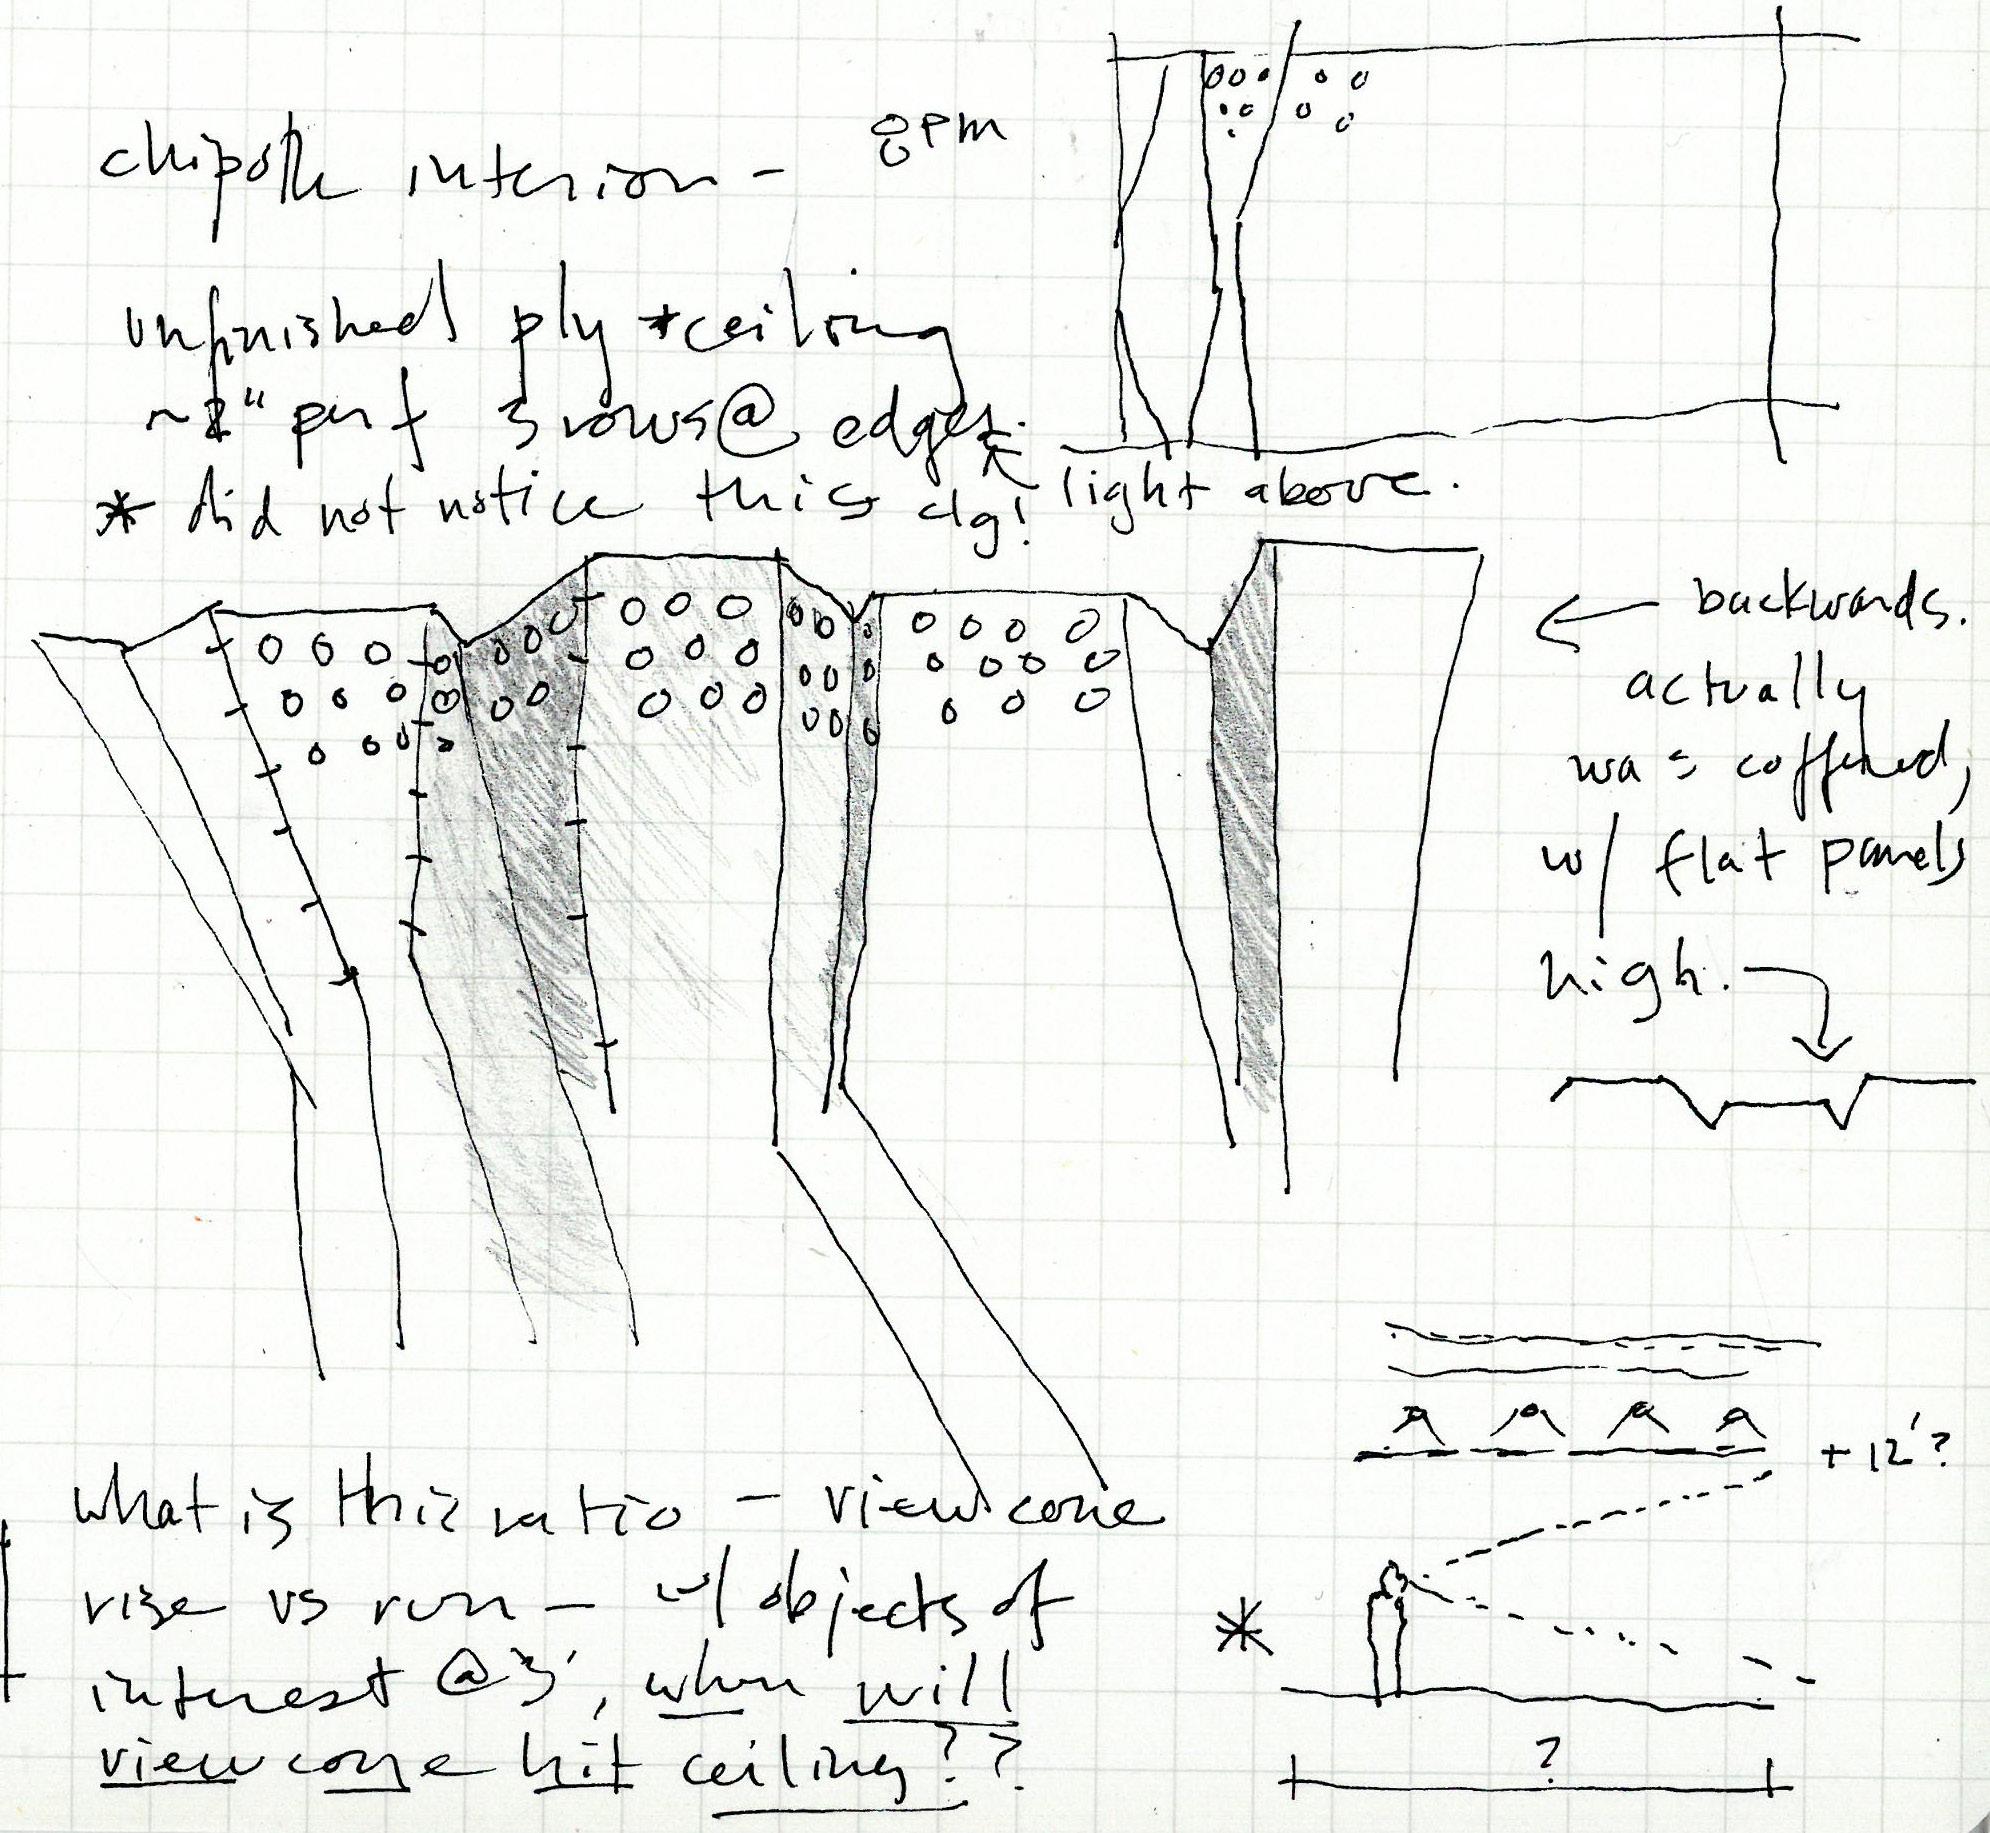 chipotle interior - 8pm
unfinished ply *ceiling
~2" perf 3 rows @ edges.
* did not notice this clg! light above.
← backwards.
actually
was coffered,
w/ flat panels
high.
+12'?
what is this ratio - view cone
rise vs run - w/ objects of
*
interest @ 3', when will
view cone hit ceiling??
?